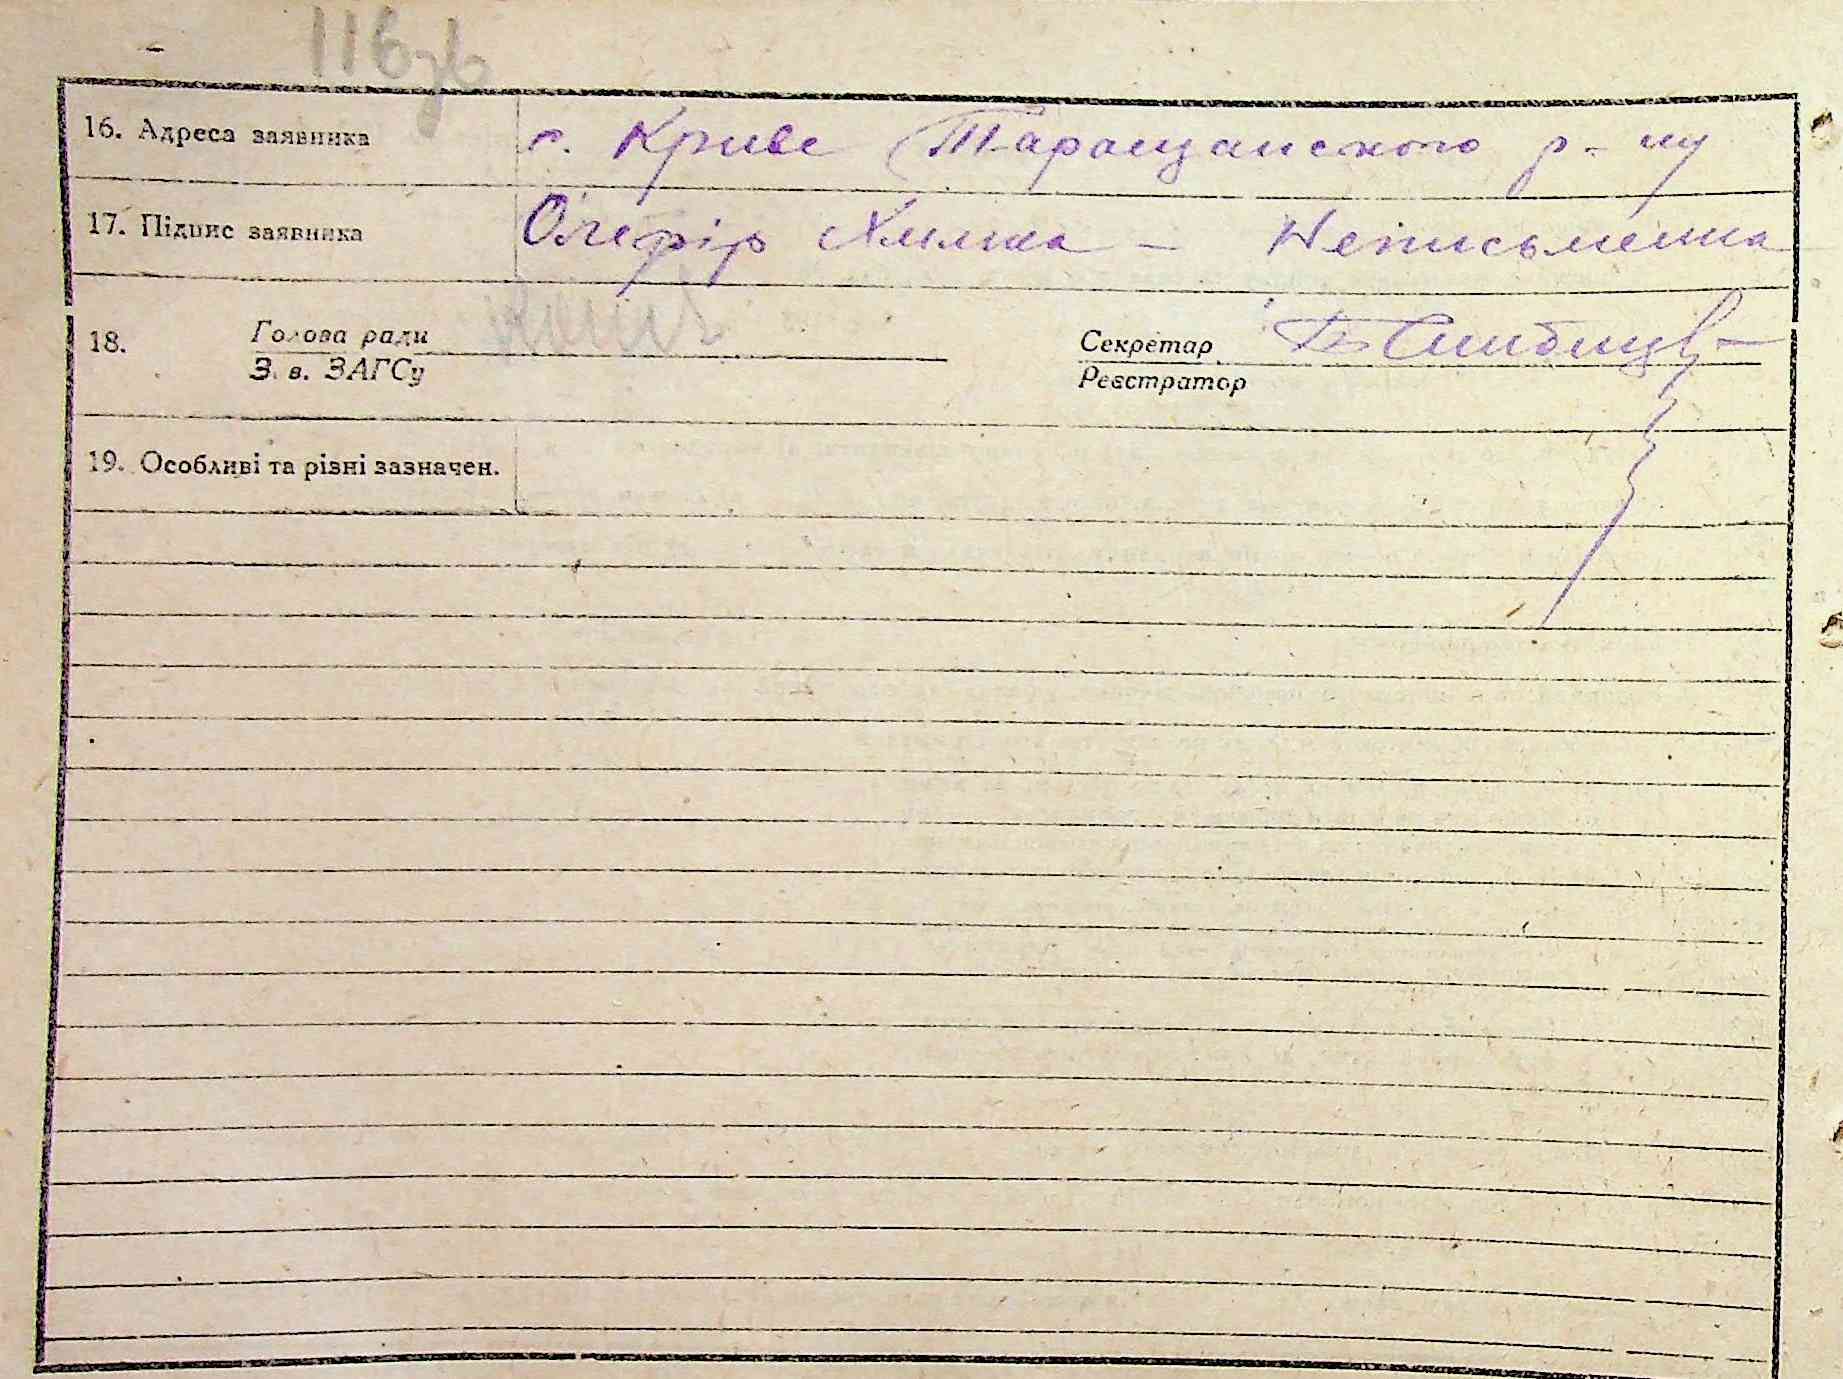 116зв
16. Адреса заявника с. Криве Таращанського р-ну
17. Підпис заявника Олефір Химка – Неписьменна
18. Голова ради Секретар
З. в. ЗАГСу Реєстратор
19. Особливі та різні зазначен.